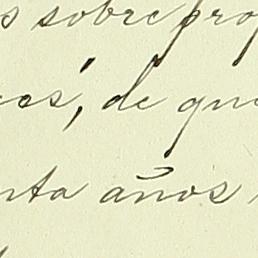 s sobre pro
cos, de qu
nta años